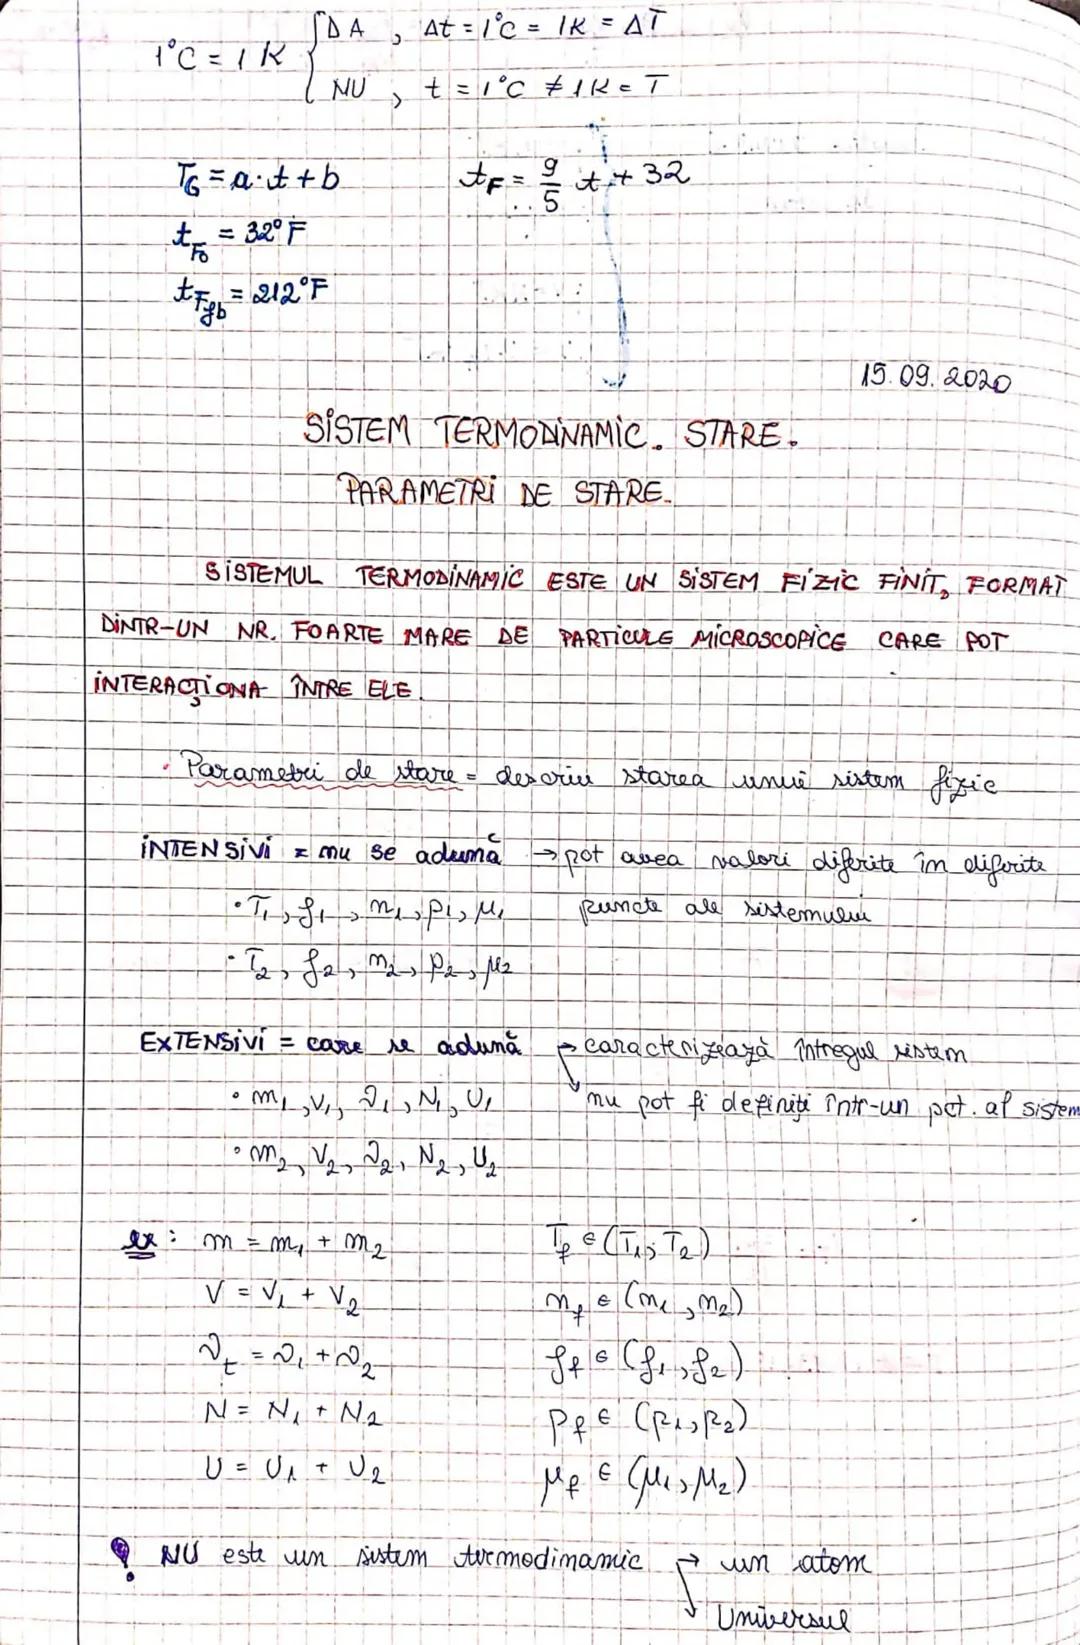 1°C = 1 K { DA , Δt = 1°C = 1K = ΔT
NU , t = 1°C ≠ 1K = T
T_G = a·t + b    t_F = 9/5 t + 32
t_F0 = 32°F
t_Ffb = 212°F
15.09.2020
SISTEM TERMODINAMIC. STARE.
PARAMETRI DE STARE.
SISTEMUL TERMODINAMIC ESTE UN SISTEM FIZIC FINIT, FORMAT
DINTR-UN NR. FOARTE MARE DE PARTICULE MICROSCOPICE CARE POT
INTERACȚIONA ÎNTRE ELE.
· Parametri de stare = descriu starea unui sistem fizic
INTENSIVI = nu se adună → pot avea valori diferite în diferite
• T₁, ρ₁, n₁, p₁, μ₁    puncte ale sistemului
• T₂, ρ₂, n₂, p₂, μ₂
EXTENSIVI = care se adună → caracterizează întregul sistem
• m₁, V₁, ν₁, N₁, U₁    ↘ nu pot fi definiți într-un pct. al sistem
• m₂, V₂, ν₂, N₂, U₂
ex: m = m₁ + m₂    T_f ∈ (T₁; T₂)
V = V₁ + V₂    n_f ∈ (n₁, n₂)
ν_t = ν₁ + ν₂    ρ_f ∈ (ρ₁, ρ₂)
N = N₁ + N₂    p_f ∈ (p₁, p₂)
U = U₁ + U₂    μ_f ∈ (μ₁, μ₂)
! NU este un sistem termodinamic → un atom
↘ Universul